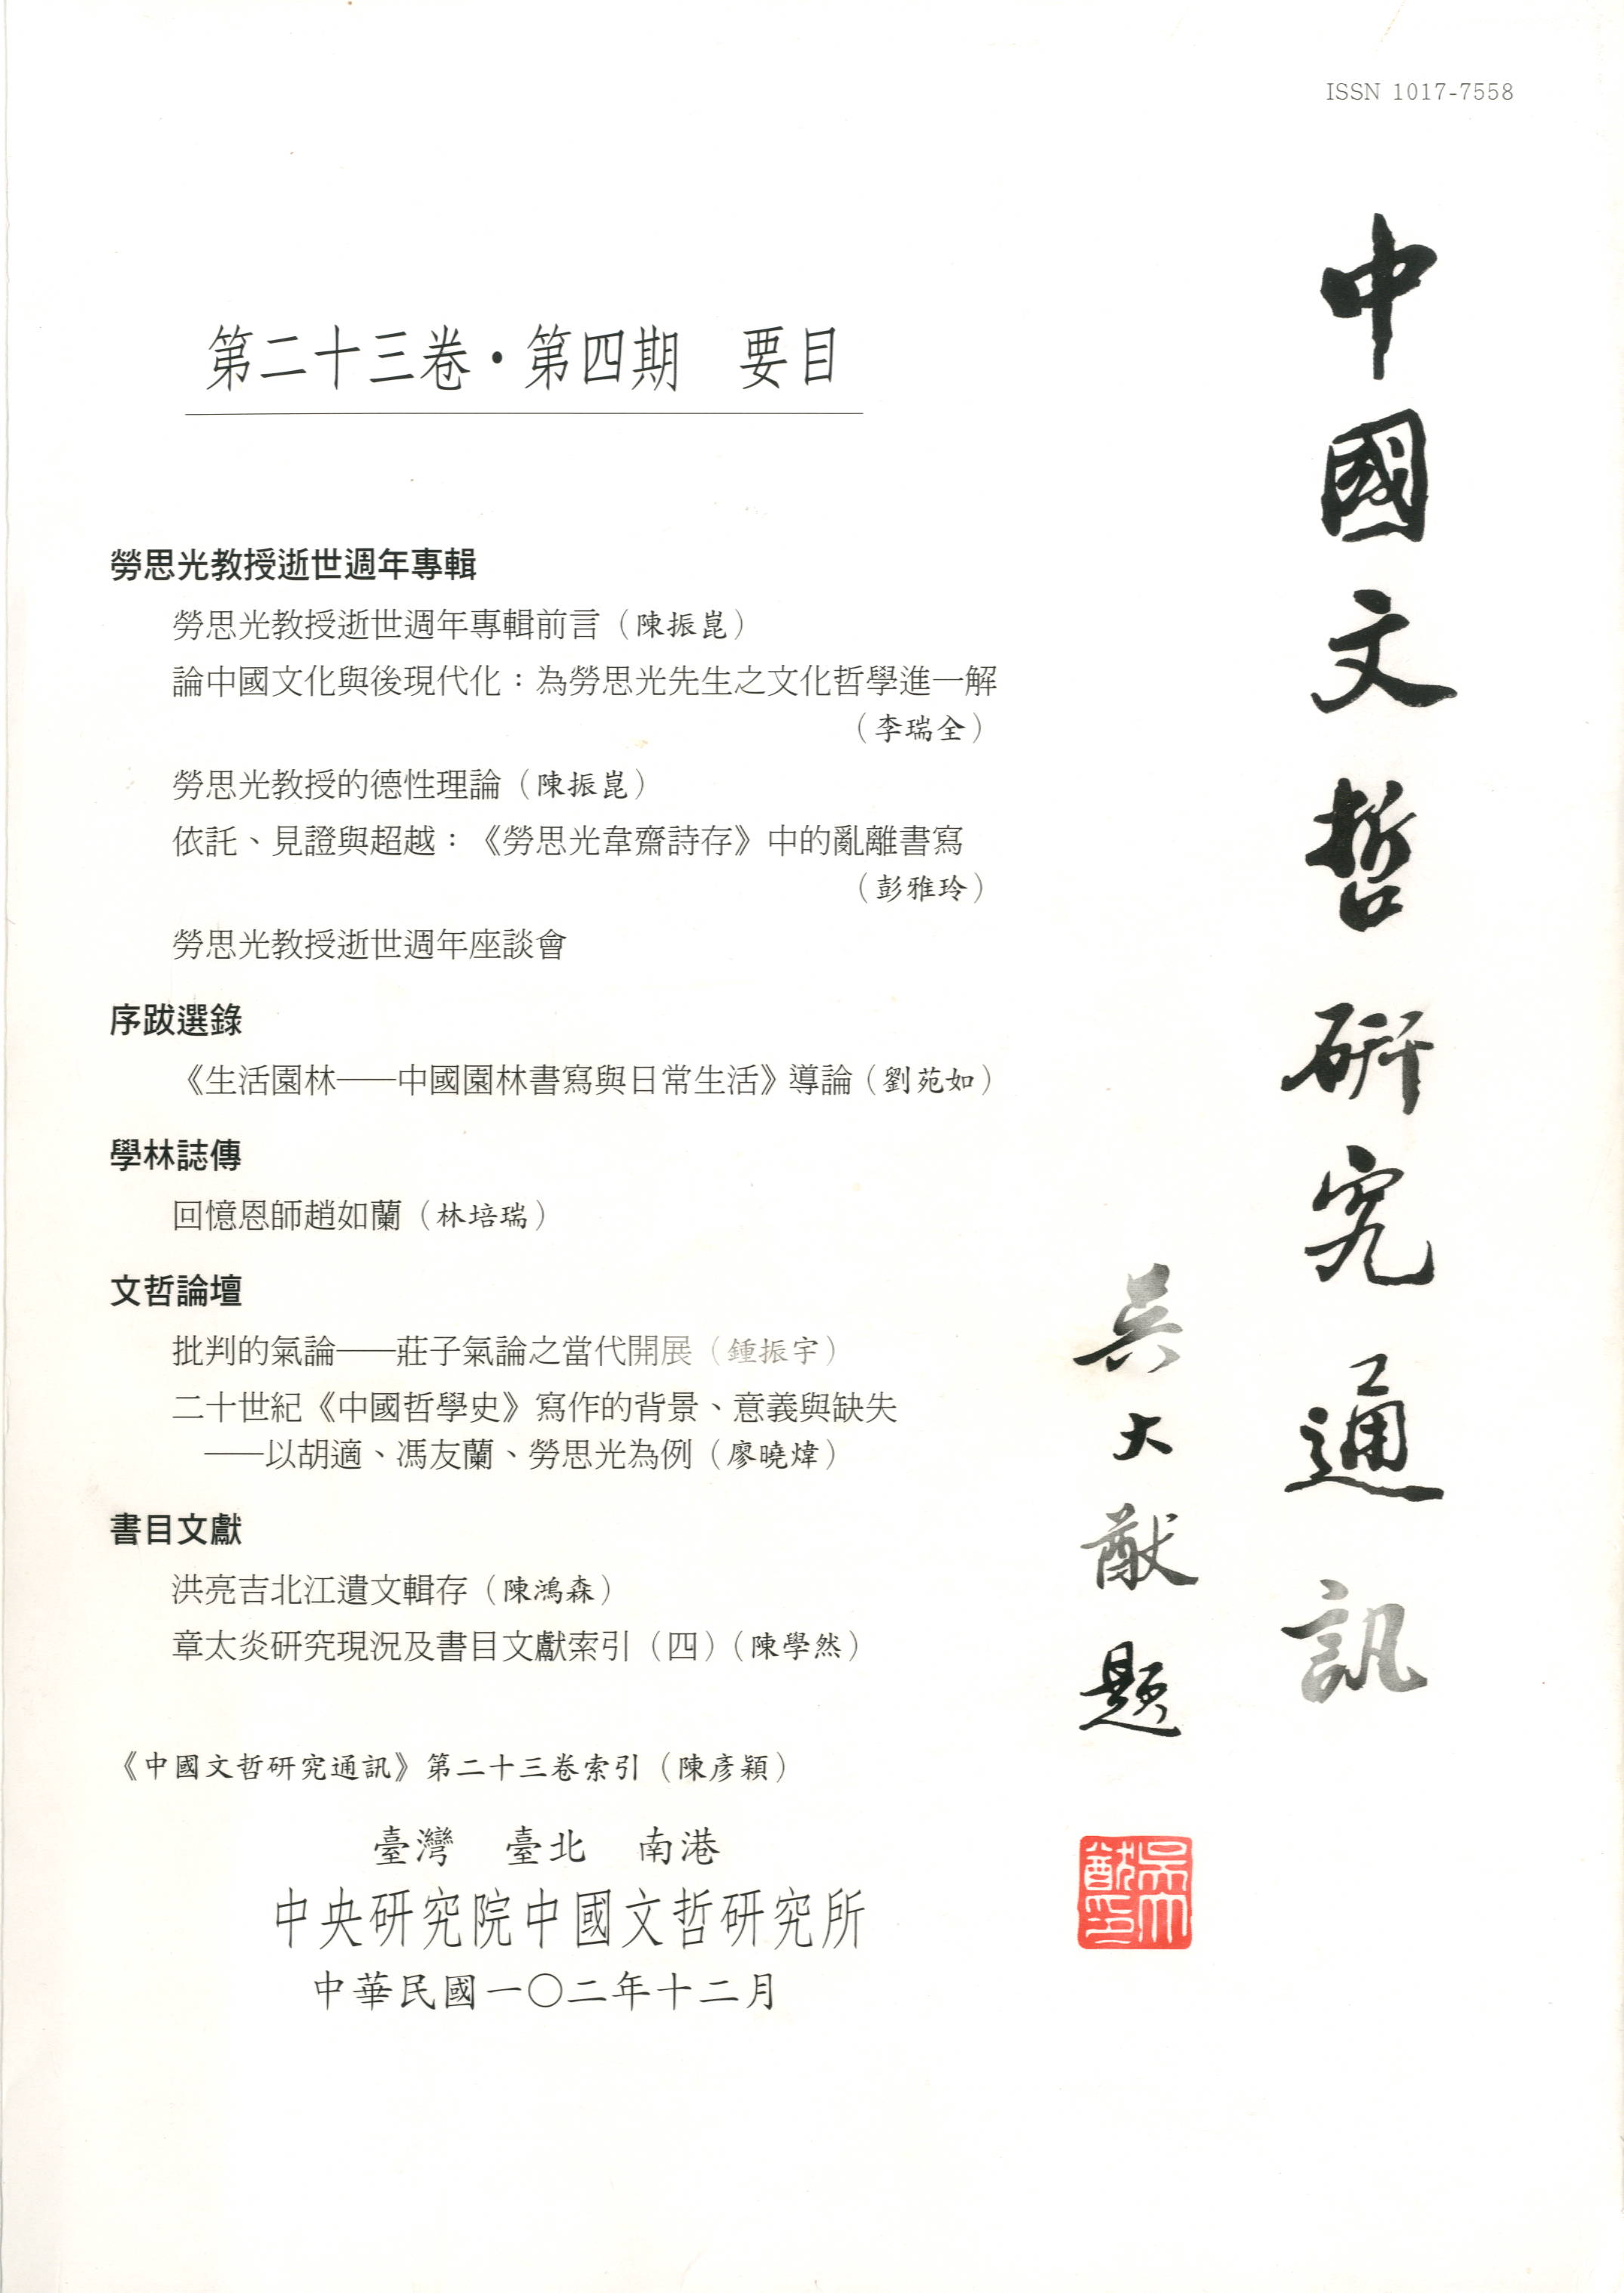 ISSN 1017-7558
中國文哲研究通訊
吳大猷題
第二十三卷・第四期　要目
勞思光教授逝世週年專輯
勞思光教授逝世週年專輯前言（陳振崑）
論中國文化與後現代化：為勞思光先生之文化哲學進一解
（李瑞全）
勞思光教授的德性理論（陳振崑）
依託、見證與超越：《勞思光韋齋詩存》中的亂離書寫
（彭雅玲）
勞思光教授逝世週年座談會
序跋選錄
《生活園林——中國園林書寫與日常生活》導論（劉苑如）
學林誌傳
回憶恩師趙如蘭（林培瑞）
文哲論壇
批判的氣論——莊子氣論之當代開展（鍾振宇）
二十世紀《中國哲學史》寫作的背景、意義與缺失
——以胡適、馮友蘭、勞思光為例（廖曉煒）
書目文獻
洪亮吉北江遺文輯存（陳鴻森）
章太炎研究現況及書目文獻索引（四）（陳學然）
《中國文哲研究通訊》第二十三卷索引（陳彥穎）
臺灣　臺北　南港
中央研究院中國文哲研究所
中華民國一〇二年十二月
吳大猷印